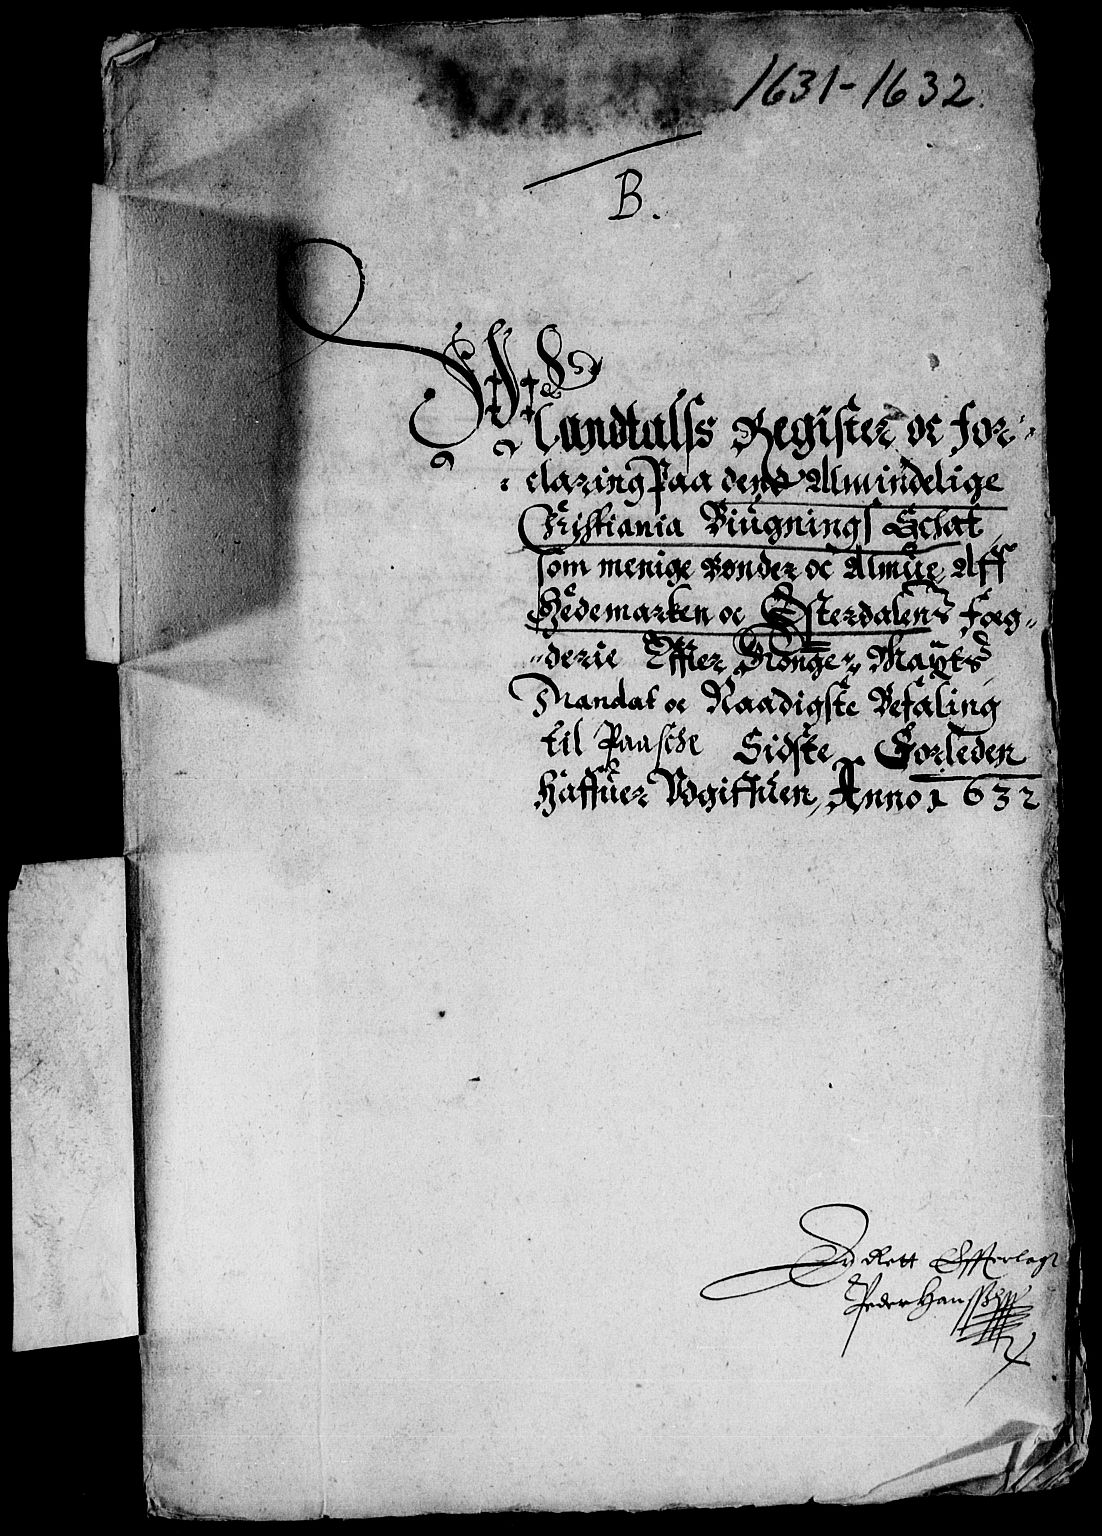 1631-1632.
B.
Mandtalss Register oc for-
claring Paa dend Almindelige
Christiania Biugnings Schat
som menige Bønder oc Almue Aff
Hedemarken oc Østerdalens Fog-
derie Effter Konge: Maytts
Mandat oc Naadigste Befaling
til Paasche Sidste Forleden
Haffuer Udgiffuen, Anno 1632
Rett Efferlagt
Peder Hanssen